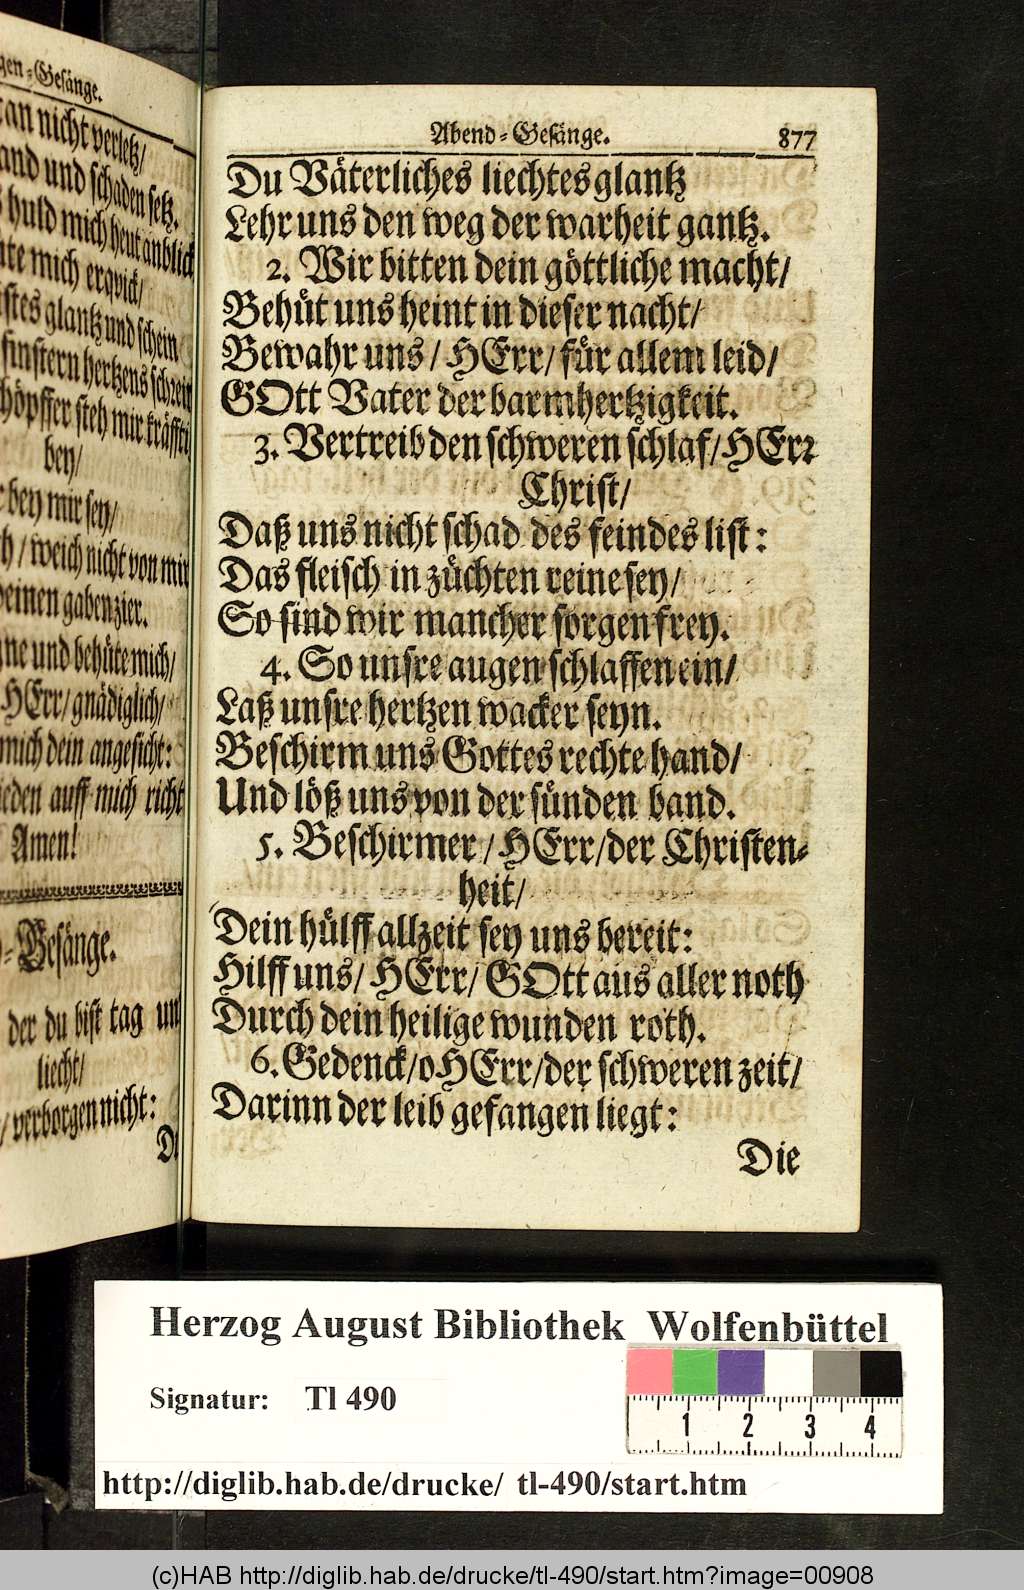 gen-Gesänge.
kan nicht verletz/
und schaden setz.
huld mich heut anblick
mich erqvick/
glantz und schein
finstern hertzens schrein
steh mir kräffti
bey/
bey mir sey/
weich nicht von mir
deinen gaben zier.
und behüte mich/
HErr/ gnädiglich/
mich dein angesicht:
auff mich richt
Amen!
Gesänge.
der du bist tag un
liecht/
verborgen nicht:
Abend-Gesänge. 877
Du Väterliches liechtes glantz
Lehr uns den weg der warheit gantz.
2. Wir bitten dein göttliche macht/
Behüt uns heint in dieser nacht/
Bewahr uns/ HErr/ für allem leid/
GOtt Vater der barmhertzigkeit.
3. Vertreib den schweren schlaf/ HErr
Christ/
Daß uns nicht schad des feindes list:
Das fleisch in züchten reine sey/
So sind wir mancher sorgen frey.
4. So unsre augen schlaffen ein/
Laß unsre hertzen wacker seyn.
Beschirm uns Gottes rechte hand/
Und löß uns von der sünden band.
5. Beschirmer/ HErr/ der Christen-
heit/
Dein hülff allzeit sey uns bereit:
Hilff uns/ HErr/ GOtt aus aller noth
Durch dein heilige wunden roth.
6. Gedenck/ o HErr/ der schweren zeit/
Darinn der leib gefangen liegt:
Die
Herzog August Bibliothek Wolfenbüttel
Signatur: Tl 490
1 2 3 4
http://diglib.hab.de/drucke/ tl-490/start.htm
(c)HAB http://diglib.hab.de/drucke/tl-490/start.htm?image=00908